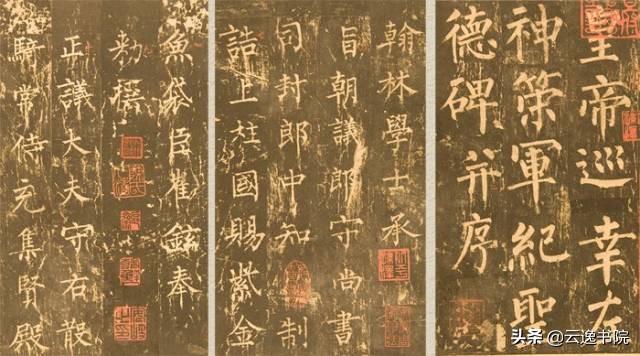 皇帝巡幸左
神策軍紀聖
德碑并序
翰林學士承
旨朝議郎守尚書
司封郎中知制
誥上柱國賜紫金
魚袋臣崔鉉奉
勅撰
正議大夫守右散
騎常侍充集賢殿
头条 @云逸书院